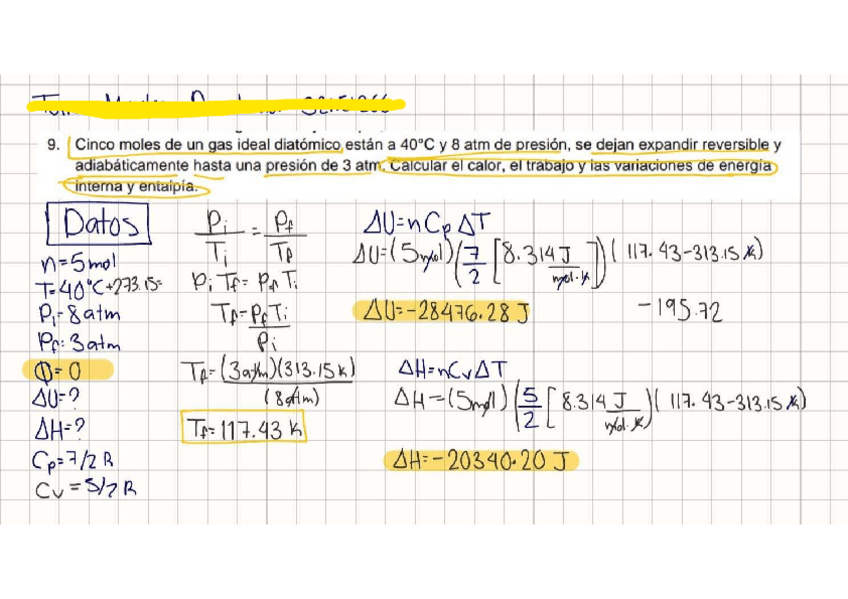 9. Cinco moles de un gas ideal diatómico están a 40°C y 8 atm de presión, se dejan expandir reversible y
adiabáticamente hasta una presión de 3 atm. Calcular el calor, el trabajo y las variaciones de energía
interna y entalpía.
Datos
n=5mol
T=40°C+273.15=
Pi=8atm
Pf=3atm
Q=0
ΔU=?
ΔH=?
Cp=7/2 R
Cv=5/2 R
Pi/Ti = Pf/Tf
Pi Tf = Pf Ti
Tf=Pf Ti/Pi
Tf=(3atm)(313.15 K)/(8atm)
Tf=117.43 K
ΔU=nCpΔT
ΔU=(5mol)(7/2[8.314J/mol·K])(117.43-313.15K)
-195.72
ΔU=-28476.28 J
ΔH=nCvΔT
ΔH=(5mol)(5/2[8.314J/mol·K)(117.43-313.15K)
ΔH=-20340.20 J